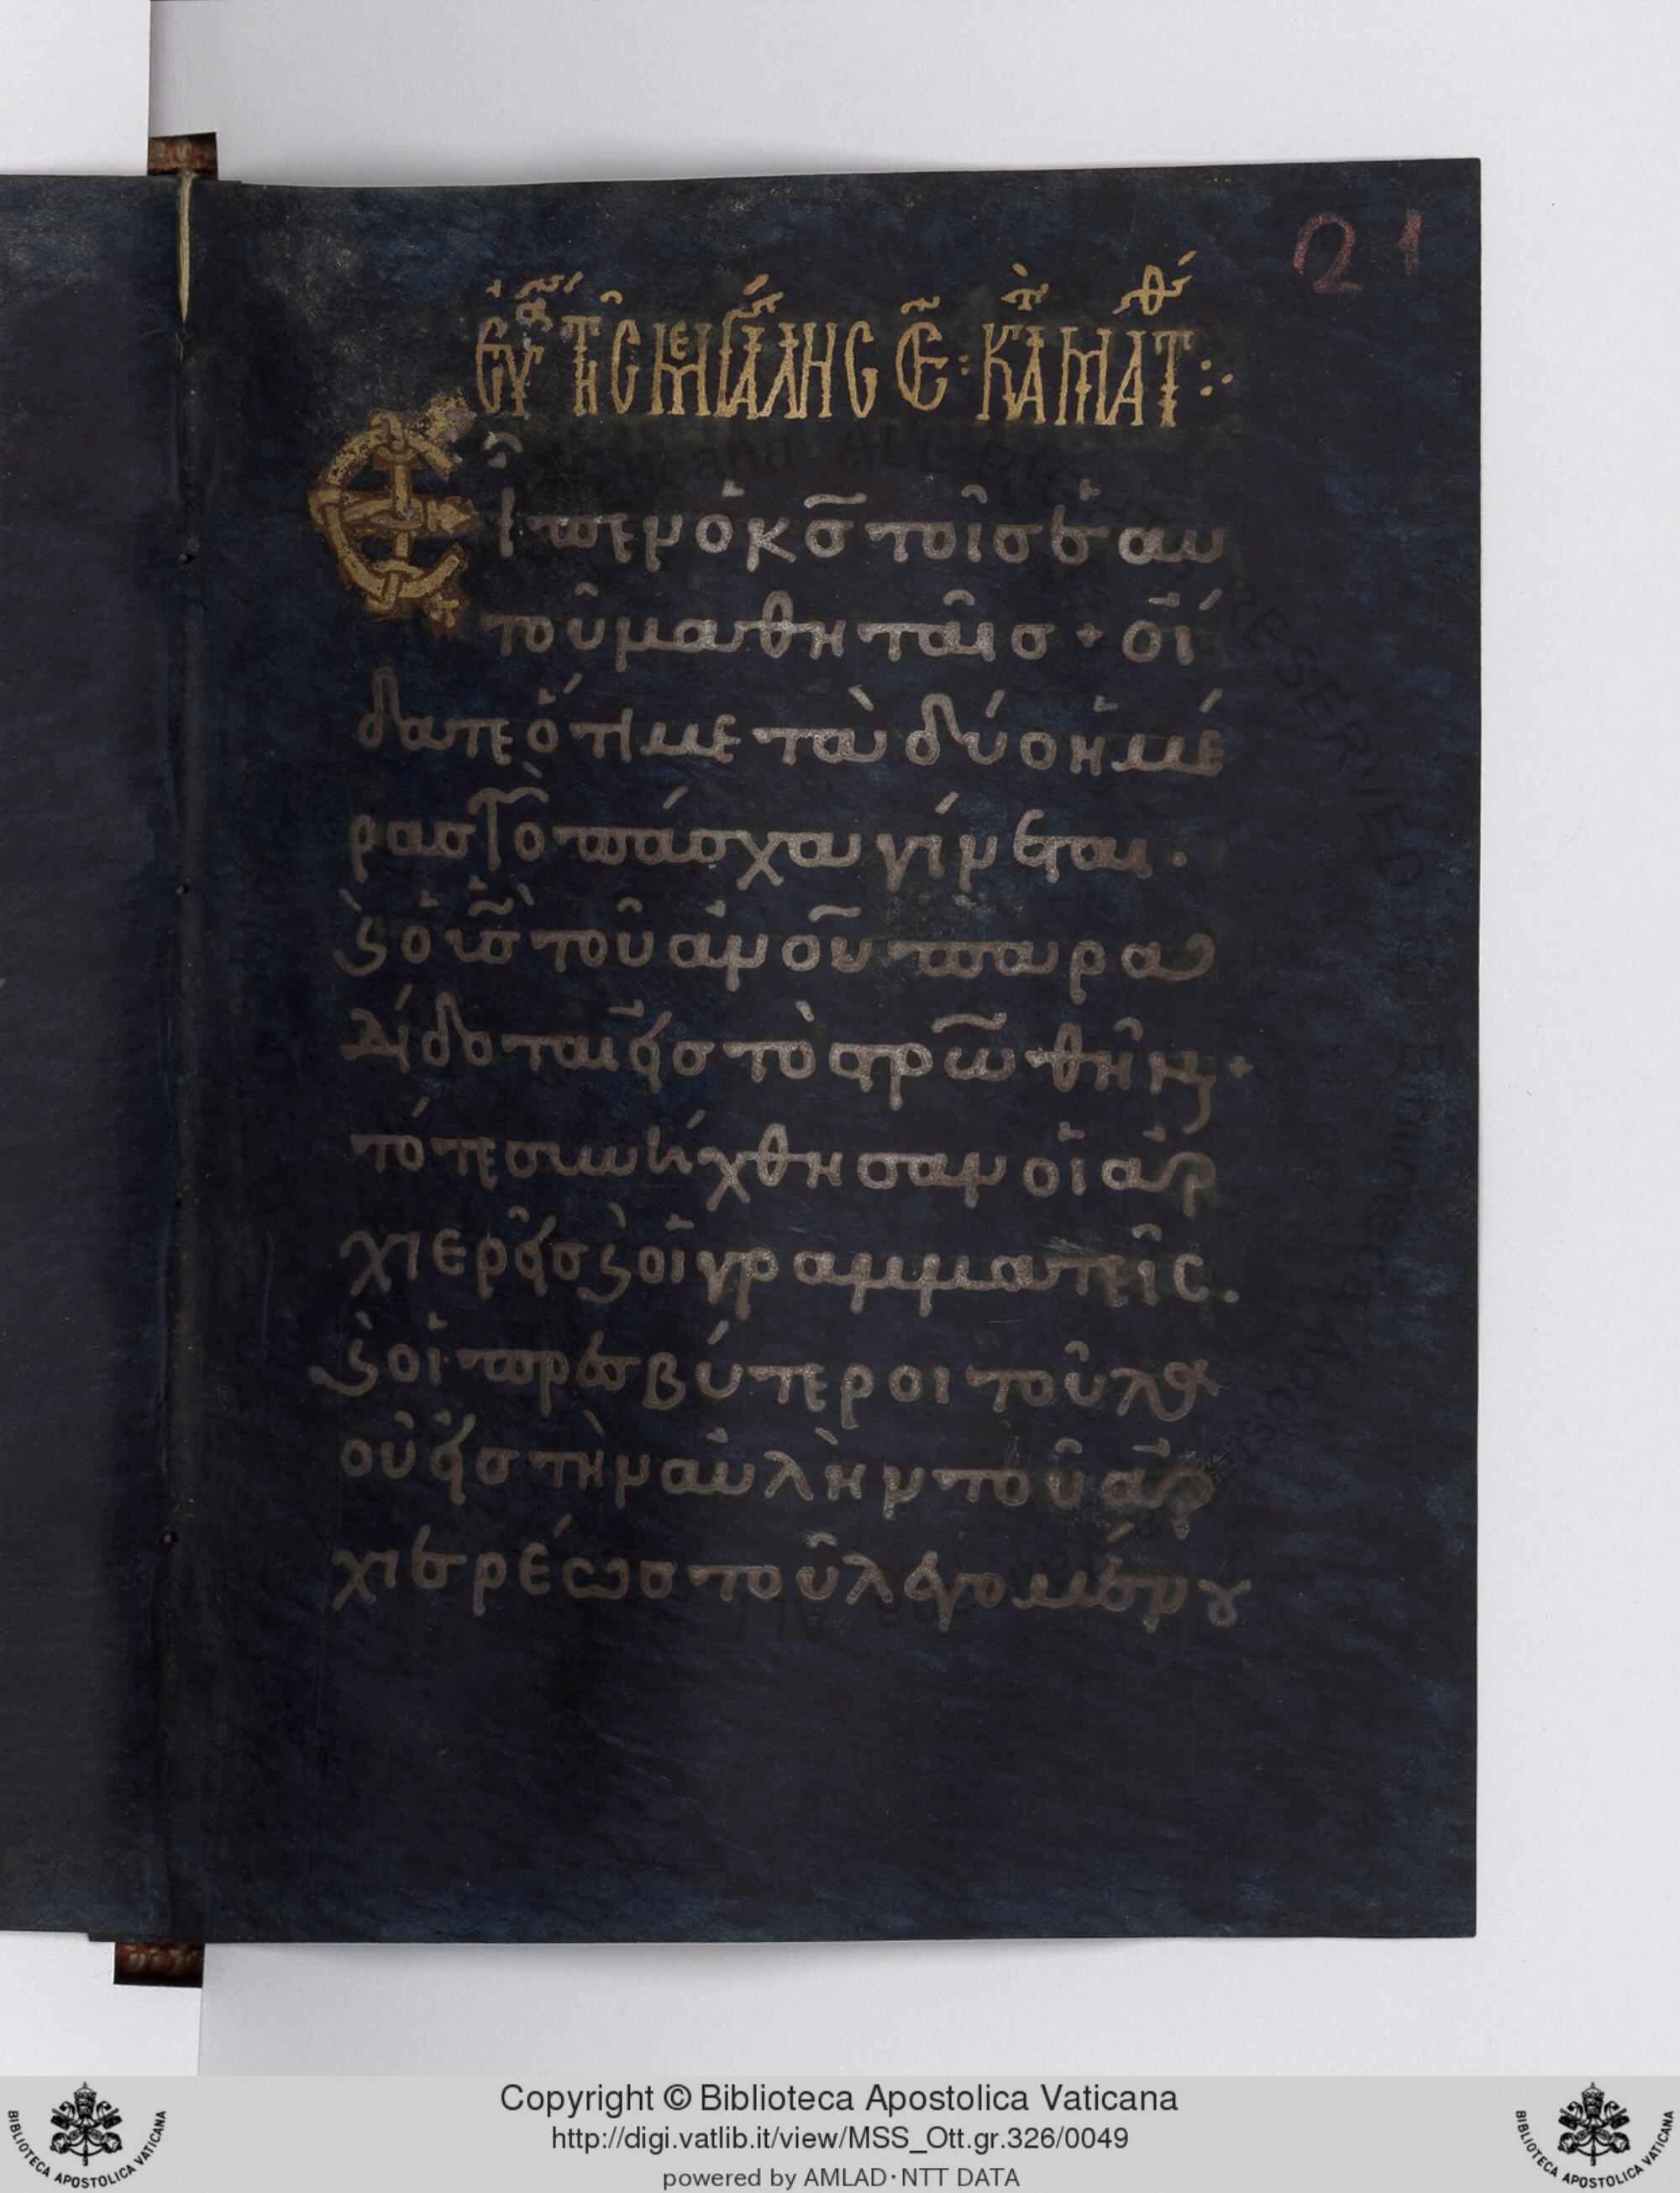 21
εὐα τῆς μεγάλης ε: κατὰ ματθ:·
Εἶπεν ὁ κς τοῖς ἑαυ
τοῦ μαθηταῖς + οἴ
δατε ὅτι μετὰ δύο ἡμέ
ρας τὸ πάσχα γίνεται·
ϗ ὁ υς τοῦ ανου παρα
δίδοται εἰς τὸ σρωθῆναι +
τότε συνήχθησαν οἱ ἀρ
χιερεῖς ϗ οἱ γραμματεῖς.
ϗ οἱ πρεσβύτεροι τοῦ λα
οῦ εἰς τὴν αὐλὴν τοῦ ἀρ
χιερέως τοῦ λεγομένου
Copyright © Biblioteca Apostolica Vaticana
http://digi.vatlib.it/view/MSS_Ott.gr.326/0049
powered by AMLAD·NTT DATA
BIBLIOTECA APOSTOLICA VATICANA
BIBLIOTECA APOSTOLICA VATICANA